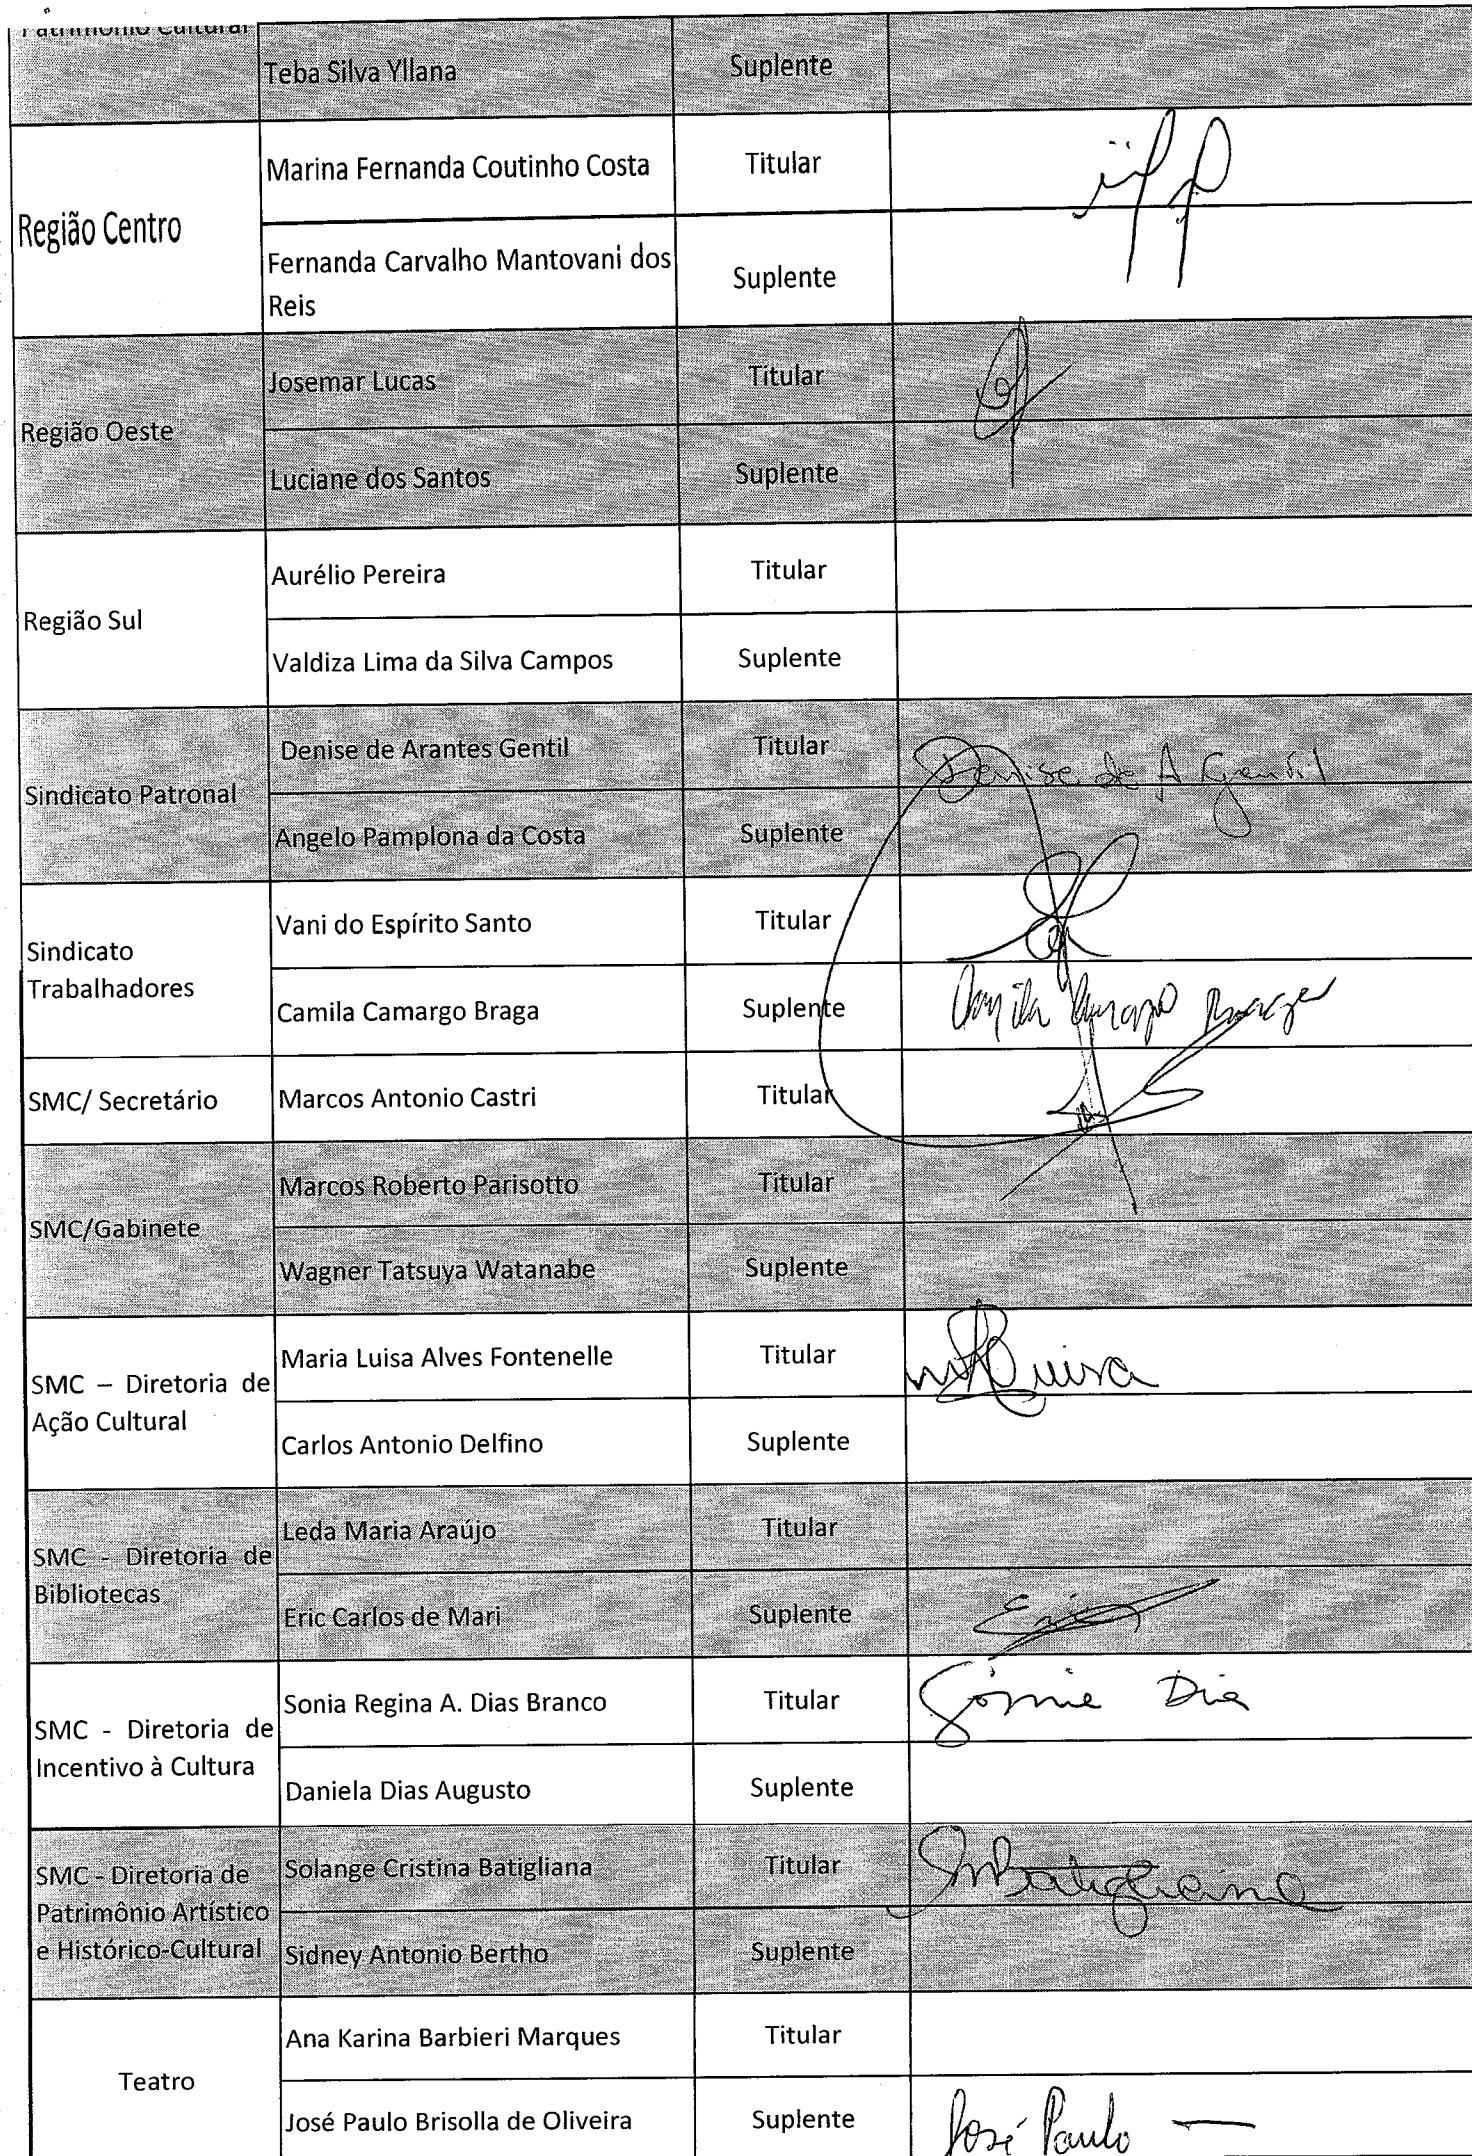 Patrimônio Cultural
Teba Silva Yllana
Suplente
Região Centro
Marina Fernanda Coutinho Costa
Titular
Fernanda Carvalho Mantovani dos
Reis
Suplente
Região Oeste
Josemar Lucas
Titular
Luciane dos Santos
Suplente
Região Sul
Aurélio Pereira
Titular
Valdiza Lima da Silva Campos
Suplente
Sindicato Patronal
Denise de Arantes Gentil
Titular
Denise de A Gentil
Angelo Pamplona da Costa
Suplente
Sindicato
Trabalhadores
Vani do Espírito Santo
Titular
Camila Camargo Braga
Suplente
Camila Camargo Braga
SMC/ Secretário
Marcos Antonio Castri
Titular
SMC/Gabinete
Marcos Roberto Parisotto
Titular
Wagner Tatsuya Watanabe
Suplente
SMC – Diretoria de
Ação Cultural
Maria Luisa Alves Fontenelle
Titular
Luisa
Carlos Antonio Delfino
Suplente
SMC - Diretoria de
Bibliotecas
Leda Maria Araújo
Titular
Eric Carlos de Mari
Suplente
Eric
SMC - Diretoria de
Incentivo à Cultura
Sonia Regina A. Dias Branco
Titular
Sônia Dias
Daniela Dias Augusto
Suplente
SMC - Diretoria de
Patrimônio Artístico
e Histórico-Cultural
Solange Cristina Batigliana
Titular
Batigliana
Sidney Antonio Bertho
Suplente
Teatro
Ana Karina Barbieri Marques
Titular
José Paulo Brisolla de Oliveira
Suplente
José Paulo —